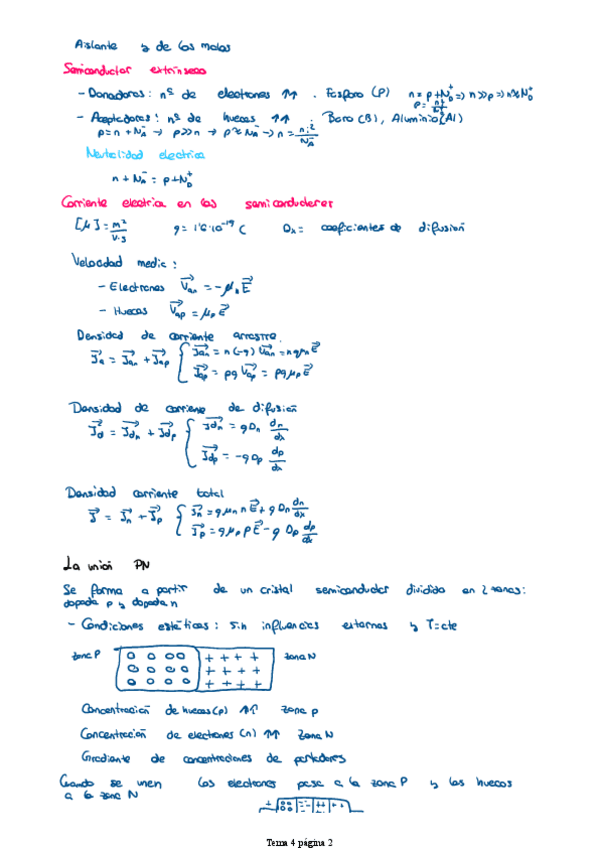 Aislante y de los malos
Semiconductor extrínseco
- Donadores: nº de electrones ↑↑ . Fosforo (P) n = p + N_D^+ => n >> p => n ≈ N_D^+
p = n_i^2 / N_D^+
- Aceptadores: nº de huecos ↑↑ . Boro (B), Aluminio (Al)
p = n + N_A^- → p >> n → p ≈ N_A^- → n = n_i^2 / N_A^-
Neutralidad electrica
n + N_A^- = p + N_D^+
Corriente electrica en los semiconductores
[μ] = m^2 / V·s q = 1'6·10^-19 C D_x = coeficientes de difusión
Velocidad media:
- Electrones V_an = -μ_n E
- Huecos V_ap = μ_p E
Densidad de corriente arrastre.
J_a = J_an + J_ap { J_an = n(-q) V_an = nqμ_n E
J_ap = pq V_ap = pqμ_p E
Densidad de corriente de difusión
J_d = J_dn + J_dp { J_dn = q D_n dn/dx
J_dp = -q D_p dp/dx
Densidad corriente total
J = J_n + J_p { J_n = q μ_n n E + q D_n dn/dx
J_p = q μ_p p E - q D_p dp/dx
La unión PN
Se forma a partir de un cristal semiconductor dividido en 2 zonas:
dopada p y dopada n
- Condiciones estáticas: sin influencias externas y T=cte
zona P zona N
Concentración de huecos (p) ↑↑ zona p
Concentración de electrones (n) ↑↑ zona N
Gradiente de concentraciones de portadores
Cuando se unen los electrones pasa a la zona P y los huecos
a la zona N
Tema 4 página 2